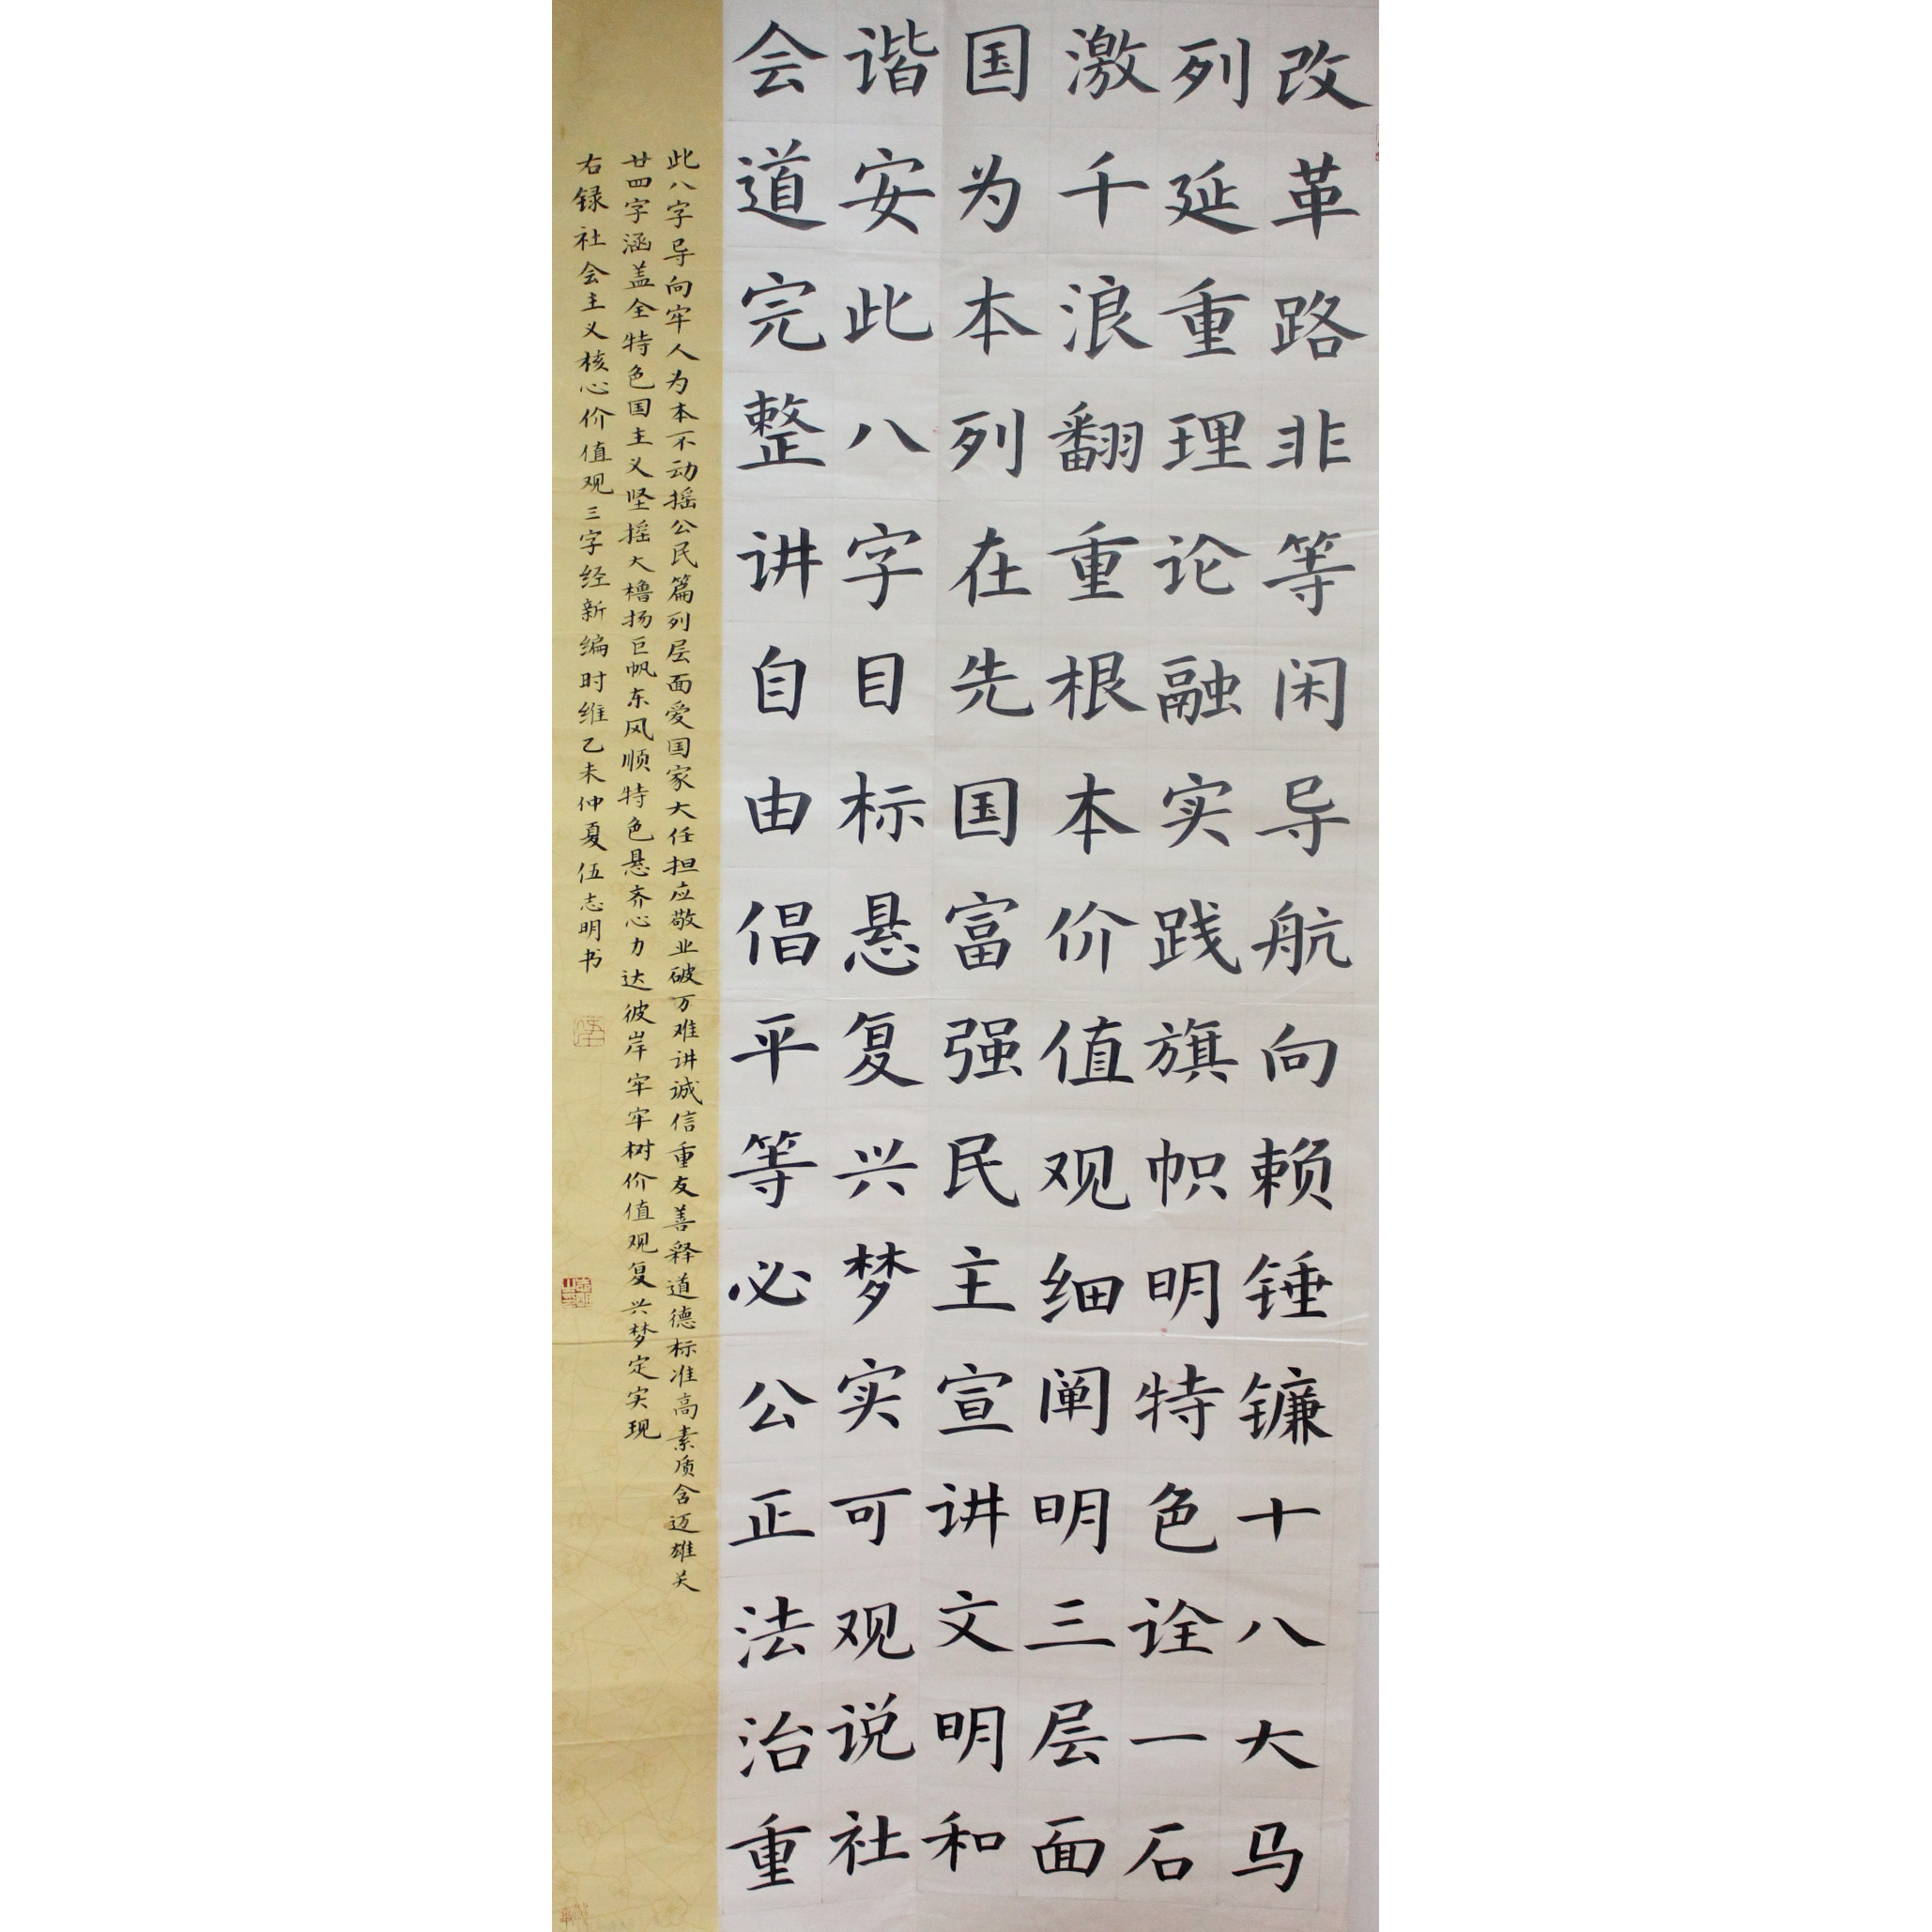 改革路非等闲导航向赖锤镰十八大马
列延重理论融实践旗帜明特色诠一石
激千浪翻重根本价值观细阐明三层面
国为本列在先国富强民主宣讲文明和
谐安此八字目标悬复兴梦实可观说社
会道完整讲自由倡平等必公正法治重
此八字导向牢人为本不动摇公民篇列层面爱国家大任担应敬业破万难讲诚信重友善释道德标准高素质含迈雄关
廿四字涵盖全特色国主义坚摇大橹扬巨帆东风顺特色悬齐心力达彼岸牢牢树价值观复兴梦定实现
右録社会主义核心价值观三字经新编时维乙未仲夏伍志明书